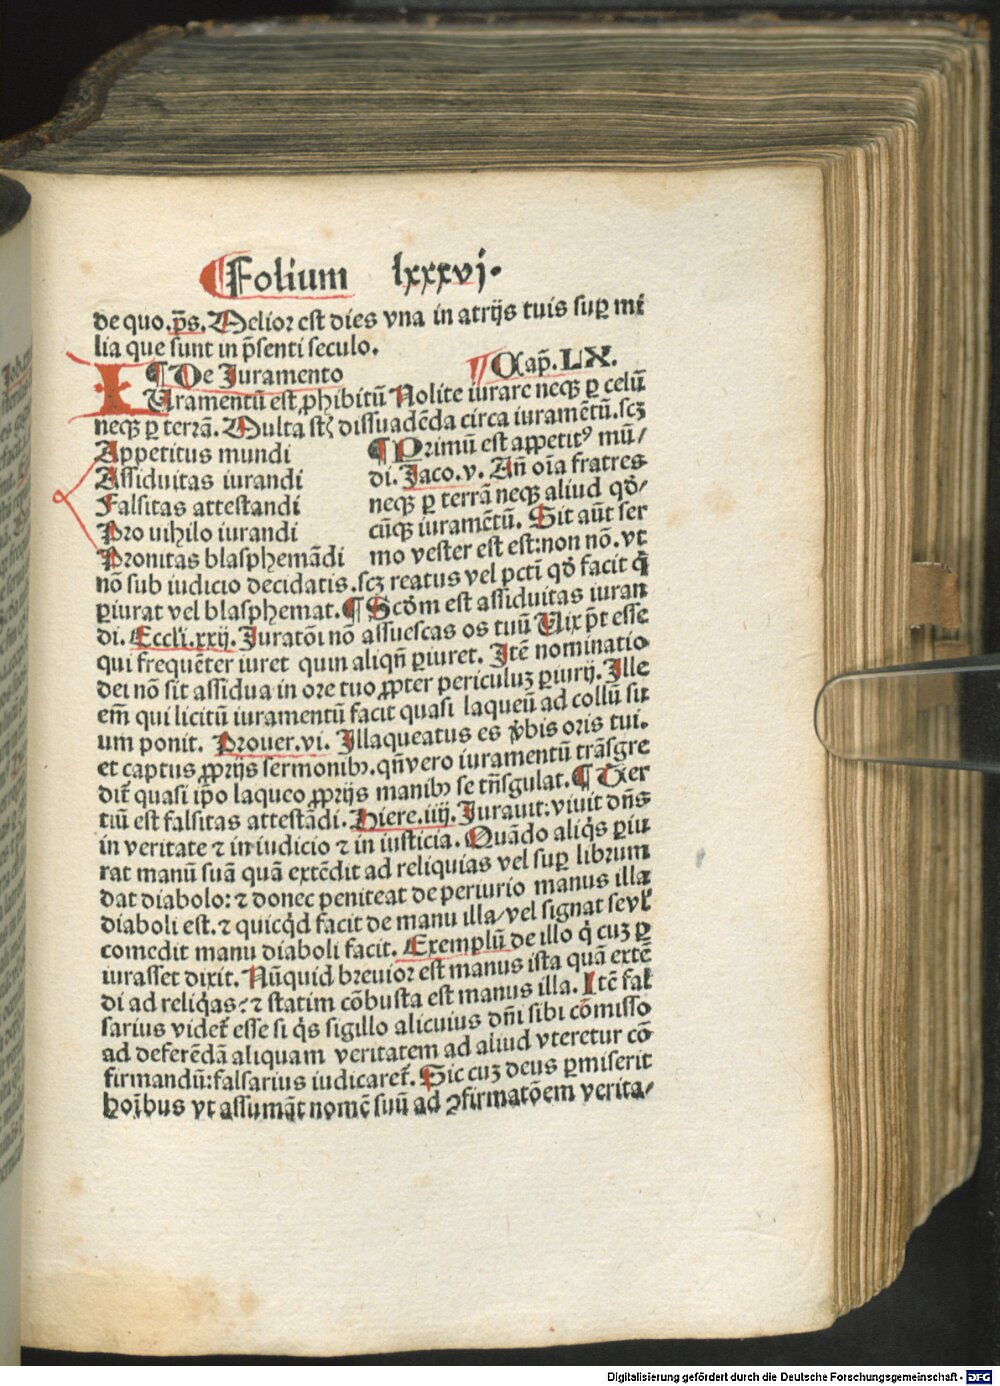 ¶Folium lxxxvj.
de quo.p̄s. Melior est dies vna in atrijs tuis suꝑ mi
lia que sunt in p̄senti seculo.
¶ De Juramento ¶ Cap̄. LX.
IUramentū est ꝓhibitū Nolite iurare neqꝫ ꝑ celū
neqꝫ ꝑ terrā. Multa st̄ dissuadēda circa iuramētū.scꝫ
Appetitus mundi
Assiduitas iurandi
Falsitas attestandi
Pro nihilo iurandi
Pronitas blasphemādi
¶ Primū est appetitꝰ mū/
di. Jaco.v. Añ oīa fratres
neqꝫ ꝑ terrā neqꝫ aliud qd̄/
cūqꝫ iuramētū. Sit aūt ser
mo vester est est:non nō.vt
nō sub iudicio decidatis.scꝫ reatus vel pctī qd̄ facit q̄
ꝑiurat vel blasphemat. ¶ Scd̄m est assiduitas iuran
di. Eccli.xxij. Juratōi nō assuescas os tuū Uix pt̄ esse
qui frequēter iuret quin aliqñ ꝑiuret. Itē nominatio
dei nō sit assidua in ore tuo ꝓpter periculuꝫ ꝑiurij. Ille
em̄ qui licitū iuramentū facit quasi laqueū ad collū su
um ponit. Prouer.vi. Illaqueatus es v̄bis oris tui.
et captus ꝓprijs sermonibꝰ.qñ vero iuramentū trāsgre
dit̄ quasi ip̄o laqueo ꝓprijs manibꝰ se trāsgulat. ¶ Ter
tiū est falsitas attestādi. Hiere.iiij. Jurauit: viuit dn̄s
in veritate ⁊ in iudicio ⁊ in iusticia. Quādo aliqͥs ꝑiu
rat manū suā quā extēdit ad reliquias vel suꝑ librum
dat diabolo: ⁊ donec peniteat de periurio manus illa
diaboli est. ⁊ quicqͥd facit de manu illa/vel signat seu
comedit manu diaboli facit. Exemplū de illo qͥ cuꝫ ꝑ
iurasset dixit. Nūquid breuior est manus ista quā extē
di ad reliqͥas: ⁊ statim cōbusta est manus illa. Itē fal
sarius videt̄ esse si qͥs sigillo alicuius dn̄i sibi cōmisso
ad deferēdā aliquam veritatem ad aliud vteretur cō
firmandū:falsarius iudicaret̄. Sic cuꝫ deus ꝑmiserit
hoībus vt assumāt nomē suū ad ꝯfirmatōem verita/
Digitalisierung gefördert durch die Deutsche Forschungsgemeinschaft - DFG